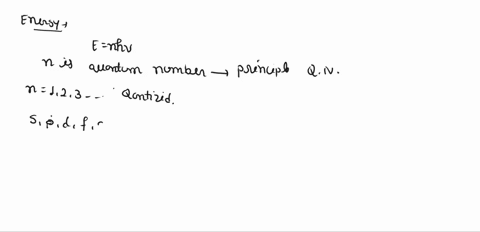 Energy
E = nhν
n is quantum number → principle Q.N.
n = 1, 2, 3 -- · Qantizid.
s, p, d, f,